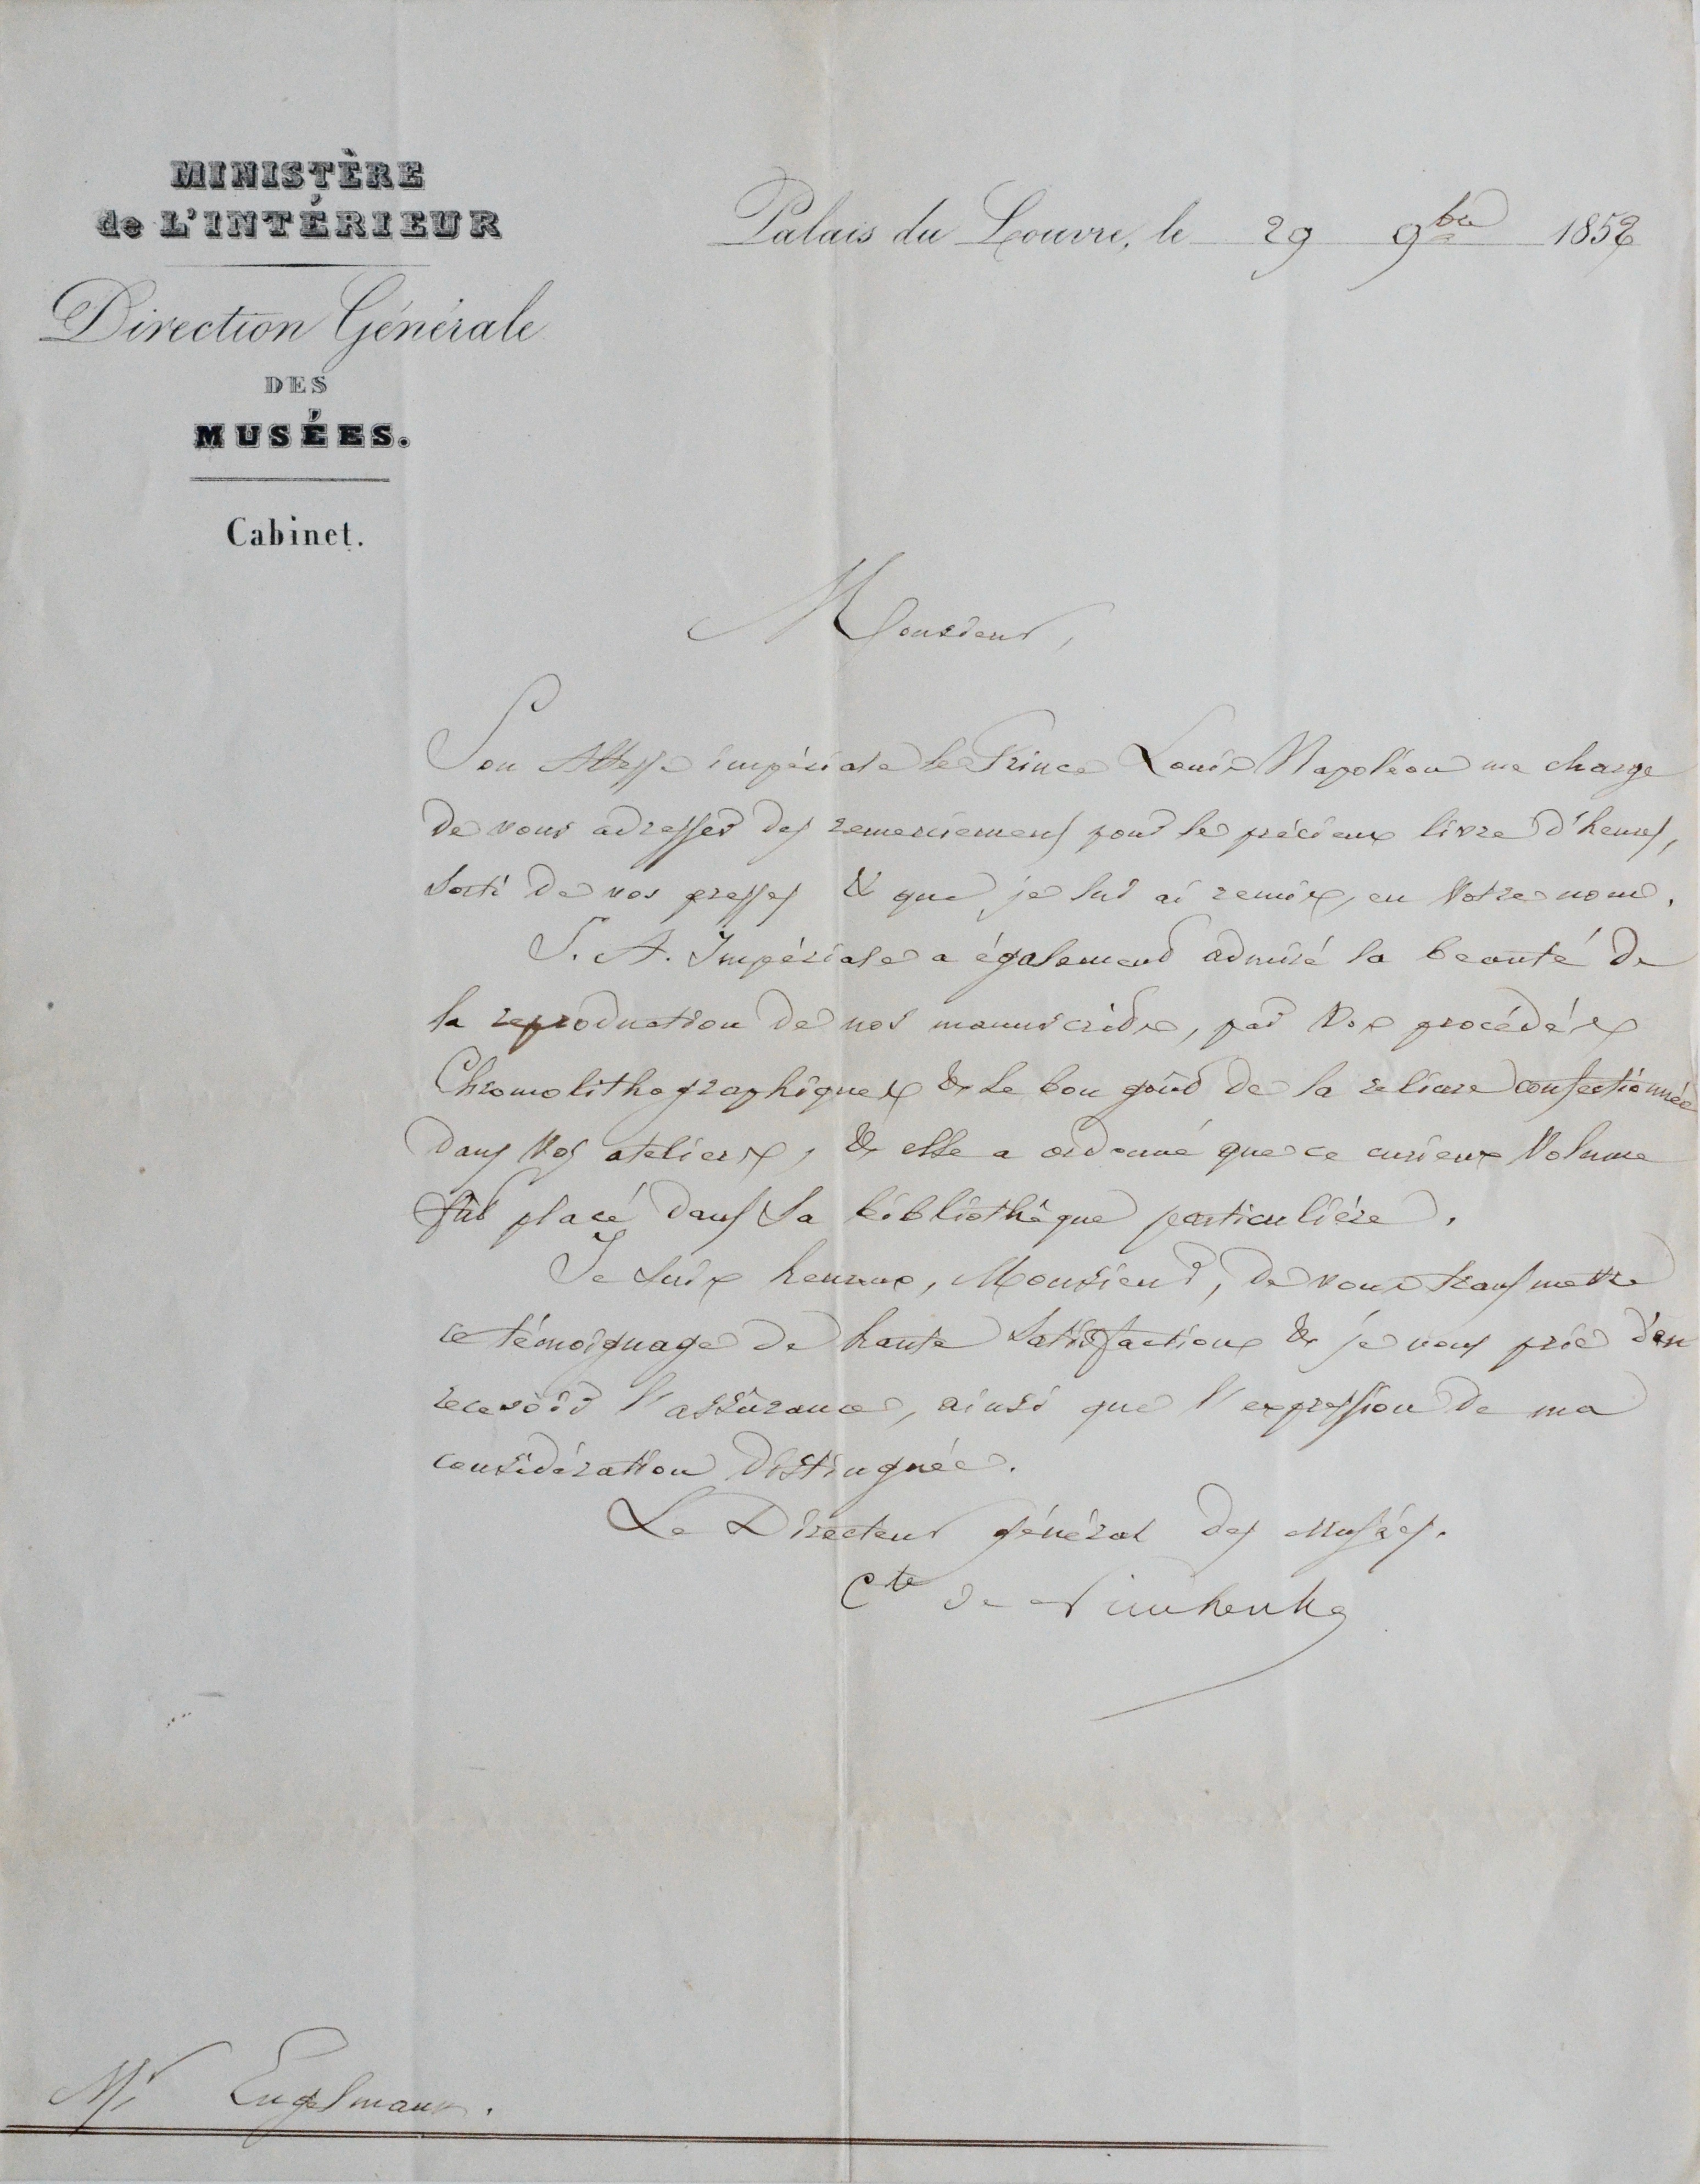 MINISTÈRE
de L'INTÉRIEUR
Direction Générale
DES
MUSÉES.
Cabinet.
Palais du Louvre, le 29 9bre 1852
Monsieur,
Son Altesse impériale le Prince Louis Napoléon me charge
de vous adresser des remerciemens pour le précieux livre d'heures,
sorti de vos presses & que je lui ai remis, en votre nom.
S. A. Impériale a également admiré la beauté de
la reproduction de nos manuscrits, par vos procédés
Chromolithographiques & le bon goût de la reliure confectionnée
dans vos ateliers, & elle a ordonné que ce curieux volume
fût placé dans sa bibliothèque particulière.
Je suis heureux, Monsieur, de vous transmettre
ce témoignage de haute satisfaction & je vous prie d'en
recevoir l'assurance, ainsi que l'expression de ma
considération distinguée.
Le Directeur général des Musées.
Cte de Nieuwerkerke
Mr Engelmann.